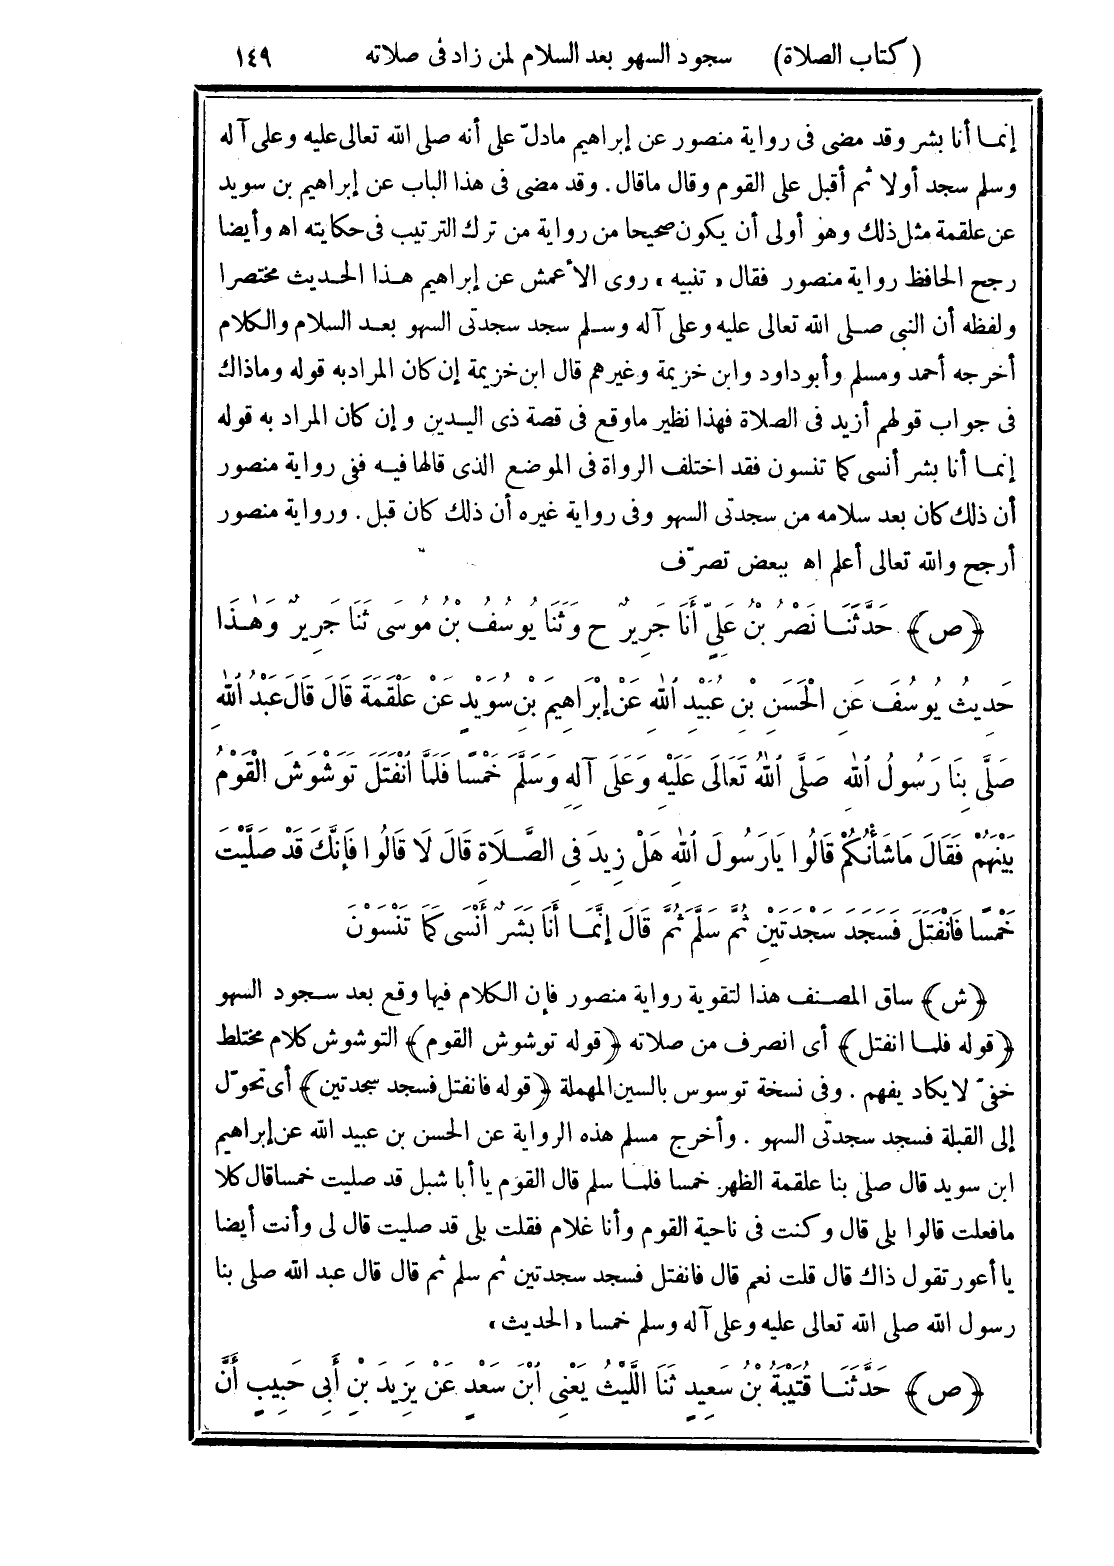 (كتاب الصلاة) سجود السهو بعد السلام لمن زاد فى صلاته ١٤٩
إنمـا أنا بشر وقد مضى فى رواية منصور عن إبراهيم مادلّ على أنه صلى الله تعالى عليه وعلى آله
وسلم سجد أولا ثم أقبل على القوم وقال ماقال. وقد مضى فى هذا الباب عن إبراهيم بن سويد
عن علقمة مثل ذلك وهو أولى أن يكون صحيحا من رواية من ترك الترتيب فى حكايته اه وأيضا
رجح الحافظ رواية منصور فقال «تنبيه» روى الأعمش عن إبراهيم هـذا الحـديث مختصرا
ولفظه أن النبى صـلى الله تعالى عليه وعلى آله وسـلم سجد سجدتى السهو بعـد السلام والكلام
أخرجه أحمد ومسلم وأبوداود وابن خزيمة وغيرهم قال ابن خزيمة إن كان المرادبه قوله وماذاك
فى جواب قولهم أزيد فى الصلاة فهذا نظير ماوقع فى قصة ذى اليـدين وإن كان المراد به قوله
إنمـا أنا بشر أنسى كما تنسون فقد اختلف الرواة فى الموضع الذى قالها فيـه ففى رواية منصور
أن ذلك كان بعد سلامه من سجدتى السهو وفى رواية غيره أن ذلك كان قبل. ورواية منصور
أرجح والله تعالى أعلم اه ببعض تصرّف
﴿ص﴾ حَدَّثَنَـا نَصْرُ بْنُ عَلِيّ أَنَا جَرِيرٌ ح وَثَنَا يُوسُفُ بْنُ مُوسَى ثَنَا جَرِيرٌ وَهٰـذَا
حَدِيثُ يُوسُفَ عَنِ الْحَسَنِ بْنِ عُبَيْدِ ٱللهِ عَنْ إِبْرَاهِيمَ بْنِ سُوَيْدٍ عَنْ عَلْقَمَةَ قَالَ قَالَ عَبْدُ ٱللهِ
صَلَّى بِنَا رَسُولُ ٱللهِ صَلَّى ٱللهُ تَعَالَى عَلَيْهِ وَعَلَى آلِهِ وَسَلَّمَ خَمْسًا فَلَمَّا ٱنْفَتَلَ تَوَشْوَشَ الْقَوْمُ
بَيْنَهُمْ فَقَالَ مَاشَأْنُكُمْ قَالُوا يَارَسُولَ ٱللهِ هَلْ زِيدَ فِى الصَّـلَاةِ قَالَ لَا قَالُوا فَإِنَّكَ قَدْ صَلَّيْتَ
خَمْسًا فَانْفَتَلَ فَسَجَدَ سَجْدَتَيْنِ ثُمَّ سَلَّمَ ثُمَّ قَالَ إِنَّمَـا أَنَا بَشَرٌ أَنْسَى كَمَا تَنْسَوْنَ
﴿ش﴾ ساق المصـنف هذا لتقوية رواية منصور فإن الكلام فيها وقع بعد سـجود السهو
﴿قوله فلمـا انفتل﴾ أى انصرف من صلاته ﴿قوله توشوش القوم﴾ التوشوش كلام مختلط
خفىّ لا يكاد يفهم. وفى نسخة توسوس بالسين المهملة ﴿قوله فانفتل فسجد سجدتين﴾ أى تحوّل
إلى القبلة فسجد سجدتى السهو. وأخرج مسلم هذه الرواية عن الحسن بن عبيد الله عن إبراهيم
ابن سويد قال صلى بنا علقمة الظهر خمسا فلمـا سلم قال القوم يا أبا شبل قد صليت خمسا قال كلا
مافعلت قالوا بلى قال وكنت فى ناحية القوم وأنا غلام فقلت بلى قد صليت قال لى وأنت أيضا
يا أعور تقول ذاك قال قلت نعم قال فانفتل فسجد سجدتين ثم سلم ثم قال قال عبد الله صلى بنا
رسول الله صلى الله تعالى عليه وعلى آله وسلم خمسا «الحديث»
﴿ص﴾ حَدَّثَنَـا قُتَيْبَةُ بْنُ سَعِيدٍ ثَنَا اللَّيْثُ يَعْنِى ٱبْنَ سَعْدٍ عَنْ يَزِيدَ بْنِ أَبِى حَبِيبٍ أَنَّ